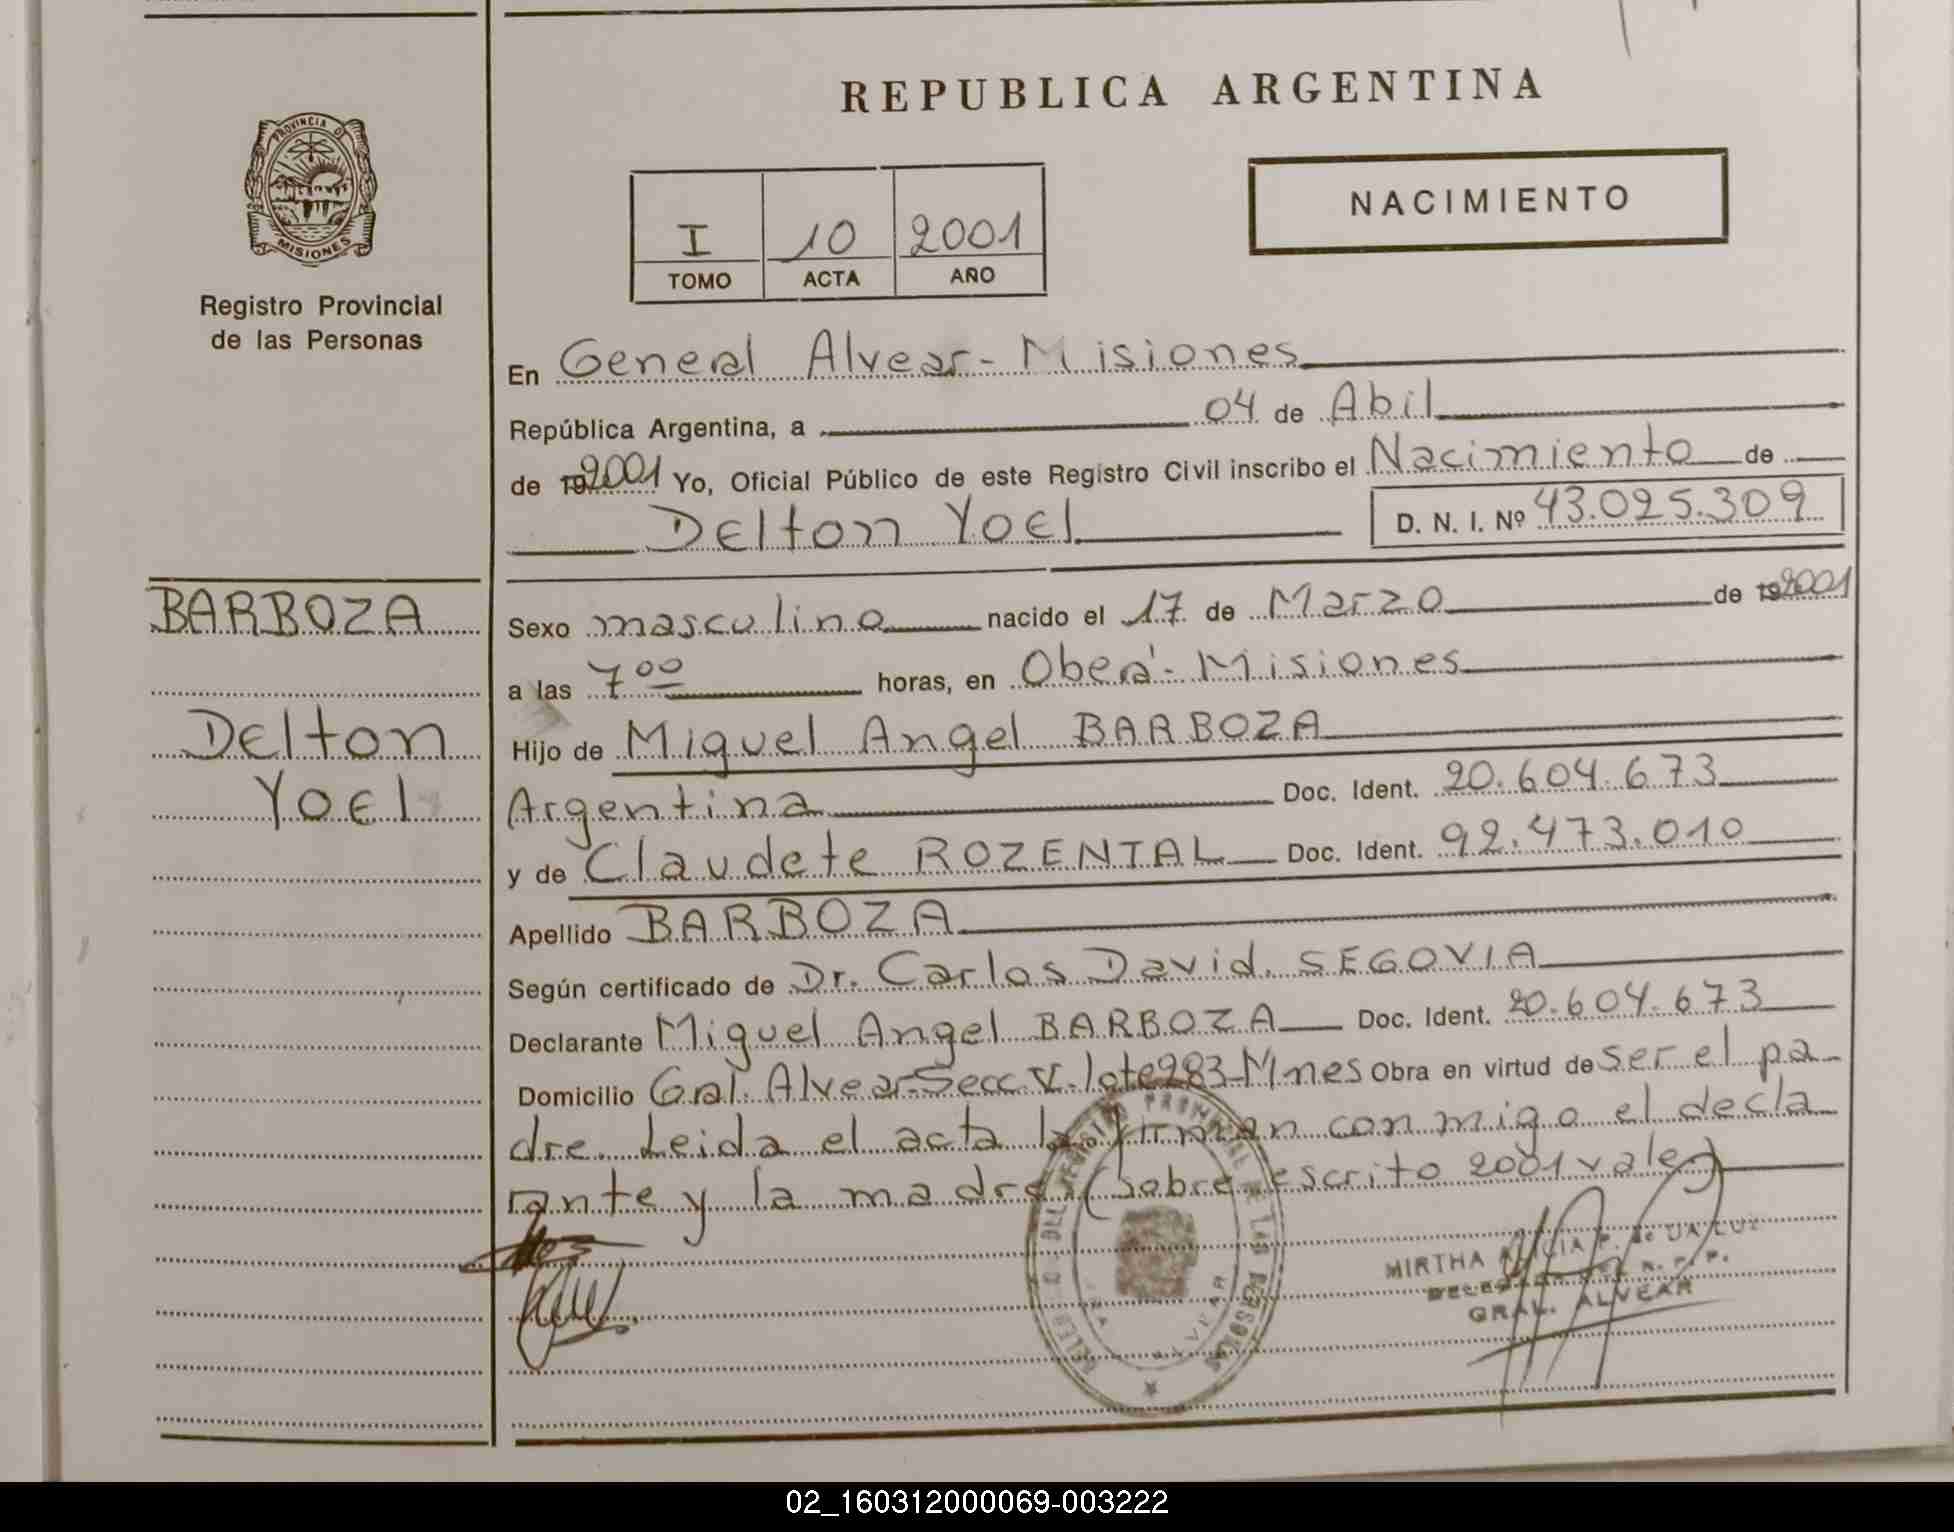 REPUBLICA ARGENTINA
PROVINCIA DE
MISIONES
Registro Provincial
de las Personas
I 10 2001
TOMO ACTA AÑO
NACIMIENTO
En General Alvear - Misiones
República Argentina, a 04 de Abil
de 19 2001 Yo, Oficial Público de este Registro Civil inscribo el Nacimiento de
DElton YoEl D. N. I. Nº 43.025.309
BARBOZA
DElton
YoEl
Sexo masculino nacido el 17 de Marzo de 19 2001
a las 7 00 horas, en Oberá - Misiones
Hijo de Miguel Angel BARBOZA
Argentina Doc. Ident. 20.604.673
y de Claudete ROZENTAL Doc. Ident. 92.473.010
Apellido BARBOZA
Según certificado de Dr. Carlos David SEGOVIA
Declarante Miguel Angel BARBOZA Doc. Ident. 20.604.673
Domicilio Gral. Alvear-Secc. V. lote 283-Mnes Obra en virtud de ser el pa
dre. Leida el acta la firman conmigo el decla
rante y la madre (sobre escrito 2001 vale)
MIRTHA ALICIA P. de
R. P. P.
GRAL. ALVEAR
02_160312000069-003222